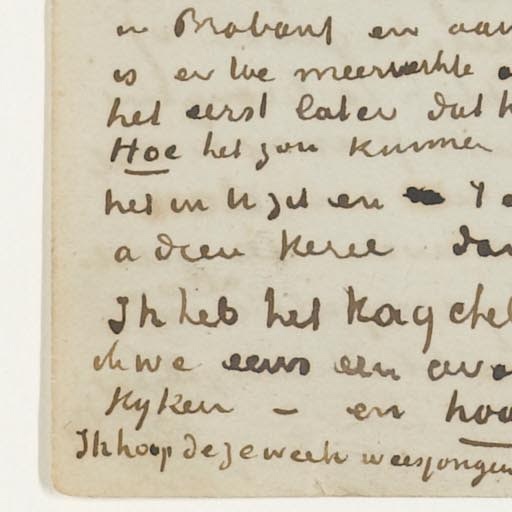 in Brabant en aan
is er we meerwerkte
het eerst later dat
Hoe het zou kunnen
het in U zit en
adieu Kerel dan
Ik heb het kagchel
ik we eens een
kyken – en
Ik hoop deze week weesjongen